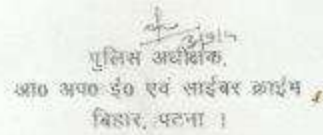 पुलिस अधीक्षक,
आ० अप० ई० एवं साईबर क्राईम
बिहार, पटना ।